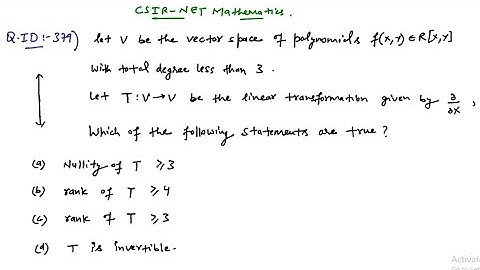 CSIR-NET Mathematics.
Q.ID:-379) let V be the vector space of polynomials f(x,y) ∈ R[x,y]
with total degree less than 3.
Let T: V→V be the linear transformation given by ∂/∂x,
Which of the following statements are true?
(a) Nullity of T ≥ 3
(b) rank of T ≥ 4
(c) rank of T ≥ 3
(d) T is invertible.
Activate
Go to Set